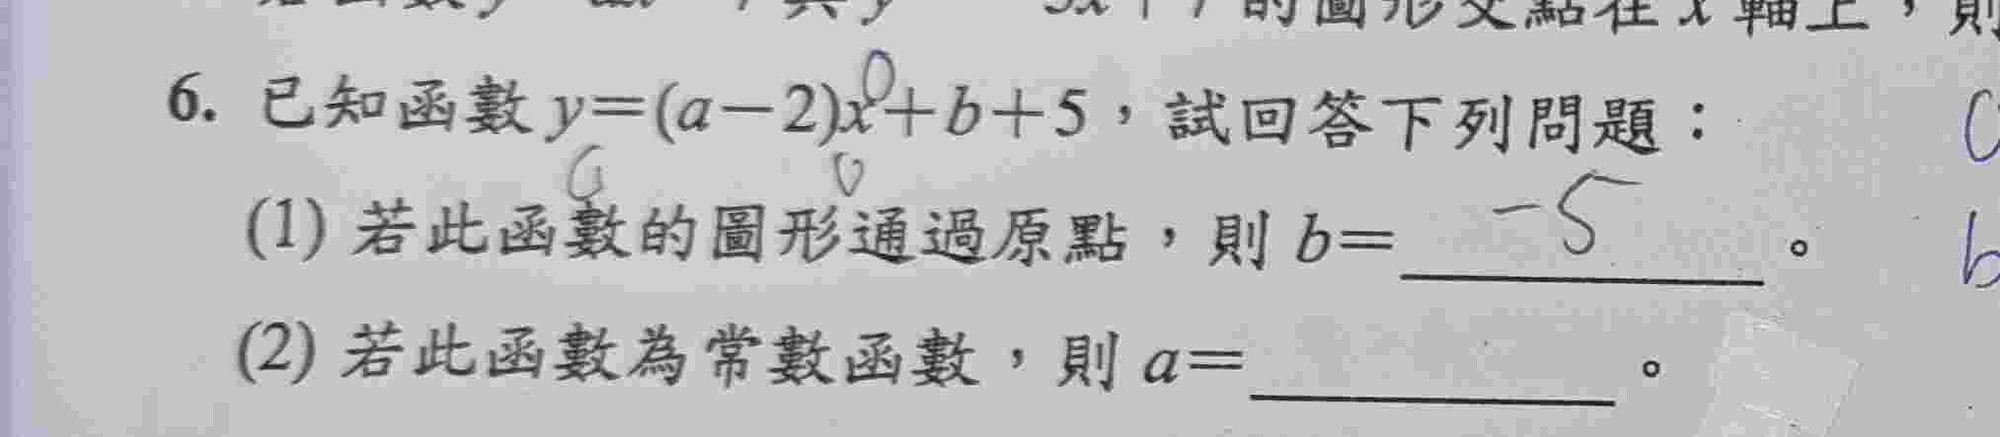 的圖形交點在 x 軸上，則
6. 已知函數 y=(a−2)x+b+5，試回答下列問題：
0 0 0
(1) 若此函數的圖形通過原點，則 b= −5 。
(2) 若此函數為常數函數，則 a=＿＿＿＿。
b